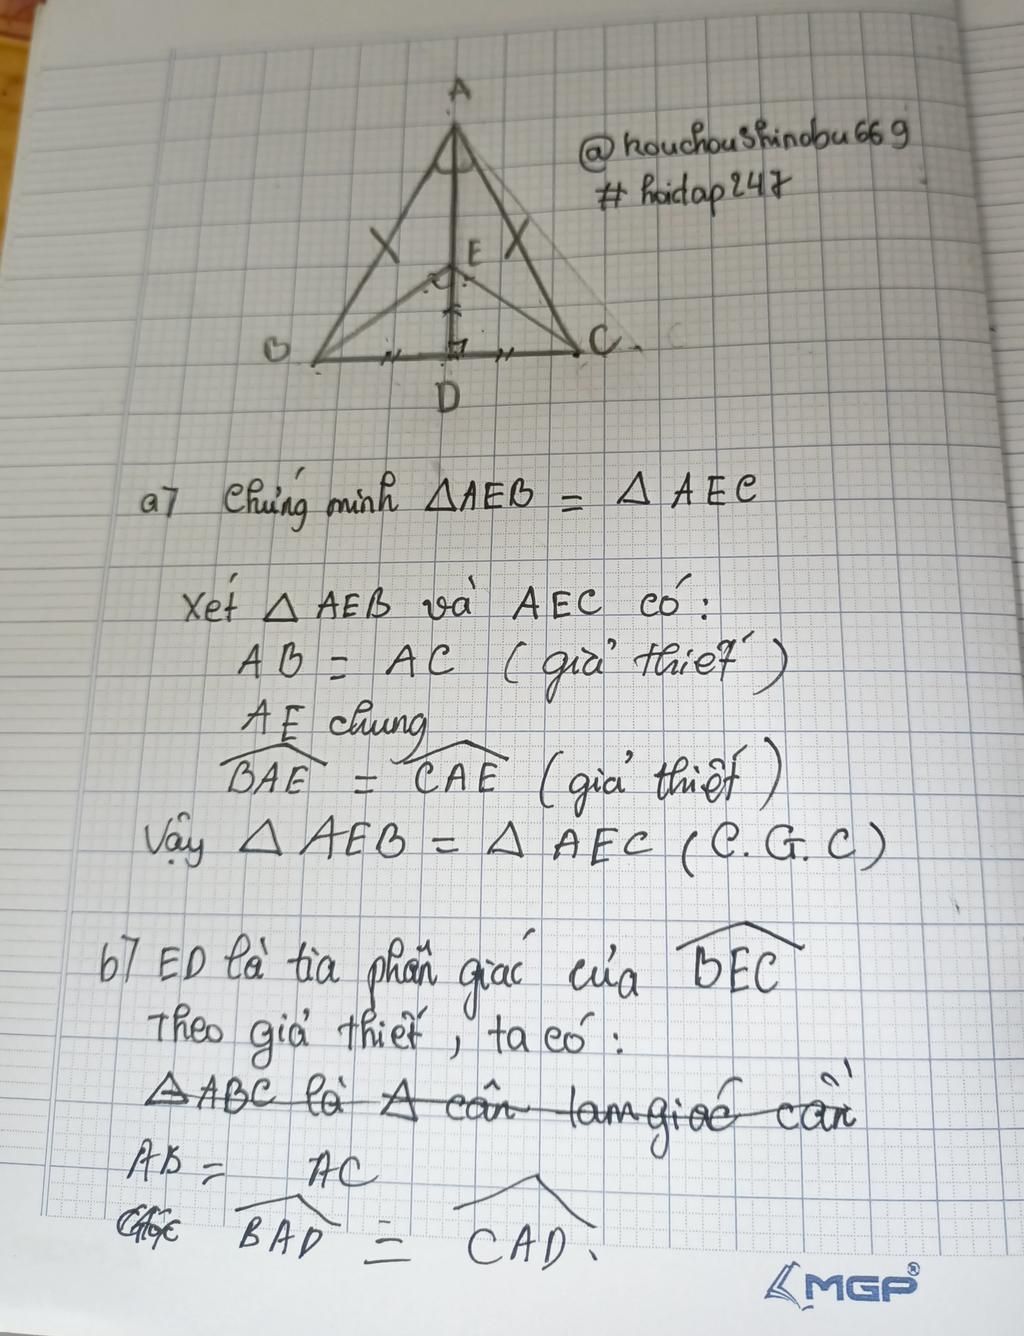 A
@kouchoushinobu669
# hoidap247
E
B
C
C
D
a) Chứng minh ΔAEB = Δ AEC
Xét Δ AEB và AEC có:
AB = AC (giả thiết)
AE chung
BAE = CAE (giả thiết)
Vậy Δ AEB = Δ AEC (C.G.C)
b) ED là tia phân giác của BEC
Theo giả thiết, ta có:
ΔABC là Δ cân tam giác cân
AB = AC
Góc BAD = CAD.
MGP®